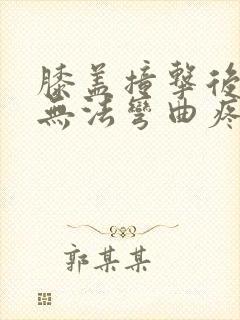 膝盖撞擊後
無法彎曲疼
郭某某